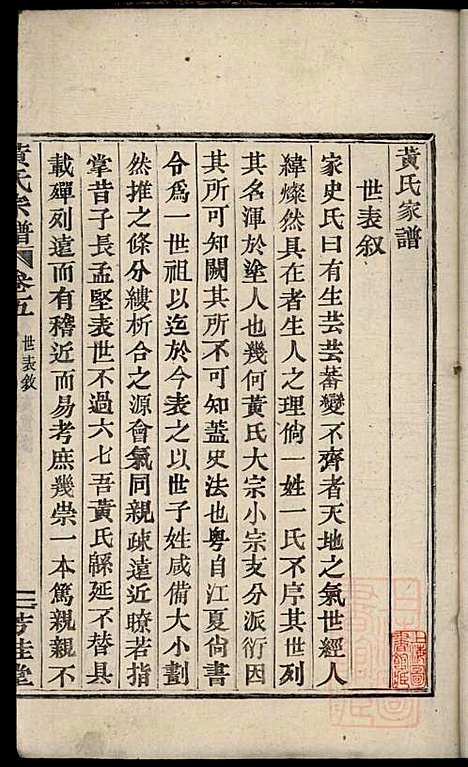 黃氏家譜
世表叙
家史氏曰有生芸芸蕃變不齊者天地之氣世經人
緯燦然具在者生人之理倘一姓一氏不序其世列
其名渾於塗人也幾何黃氏大宗小宗支分派衍因
其所可知闕其所不可知蓋史法也粵自江夏尙書
令爲一世祖以迄於今表之以世子姓咸備大小劃
然推之條分縷析合之源會氣同親疎遠近瞭若指
掌昔子長孟堅表世不過六七吾黃氏緜延不替具
載殫列遠而有稽近而易考庶幾崇一本篤親親不
黃氏宗譜
卷五
世表敘
二
芳桂堂